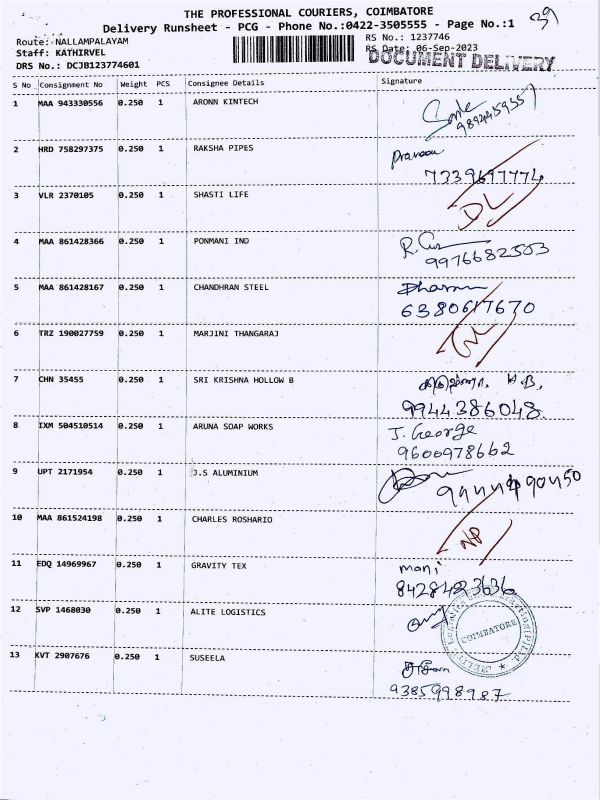 THE PROFESSIONAL COURIERS, COIMBATORE
39
Delivery Runsheet - PCG - Phone No.:0422-3505555 - Page No.:1
Route: NALLAMPALAYAM
RS No.: 1237746
Staff: KATHIRVEL
RS Date: 06-Sep-2023
DRS No.: DCJB123774601
DOCUMENT DELIVERY
S No Consignment No Weight PCS Consignee Details Signature
1 MAA 943330556 0.250 1 ARONN KINTECH
2 HRD 758297375 0.250 1 RAKSHA PIPES Praveen
7339697774
3 VLR 2370105 0.250 1 SHASTI LIFE DL
4 MAA 861428366 0.250 1 PONMANI IND
9976682503
5 MAA 861428167 0.250 1 CHANDHRAN STEEL
6380617670
6 TRZ 190027759 0.250 1 MARJINI THANGARAJ
7 CHN 35455 0.250 1 SRI KRISHNA HOLLOW B
9944386048
8 IXM 504510514 0.250 1 ARUNA SOAP WORKS J. George
9600978662
9 UPT 2171954 0.250 1 J.S ALUMINIUM
10 MAA 861524198 0.250 1 CHARLES ROSHARIO NP
11 EDQ 14969967 0.250 1 GRAVITY TEX mani
8428493636
12 SVP 1468030 0.250 1 ALITE LOGISTICS
COIMBATORE
13 KVT 2907676 0.250 1 SUSEELA
9385998987